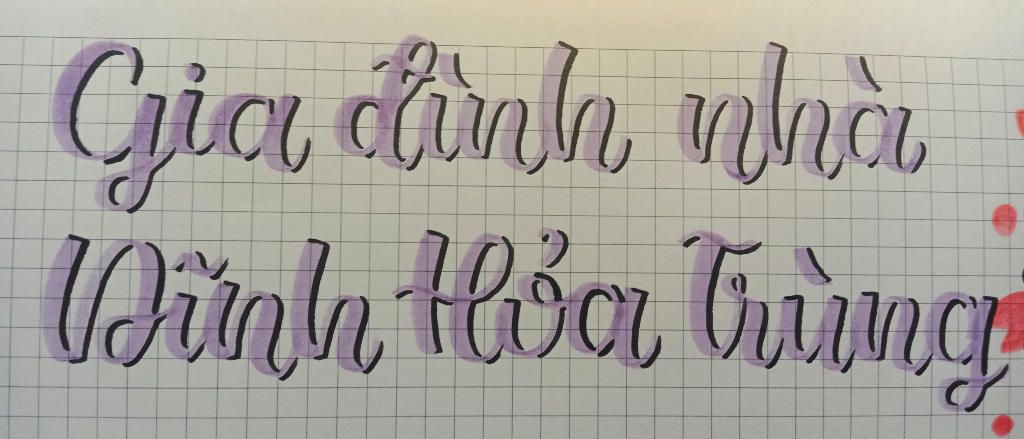 Gia đình nhà
Vĩnh Hỏa Trùng